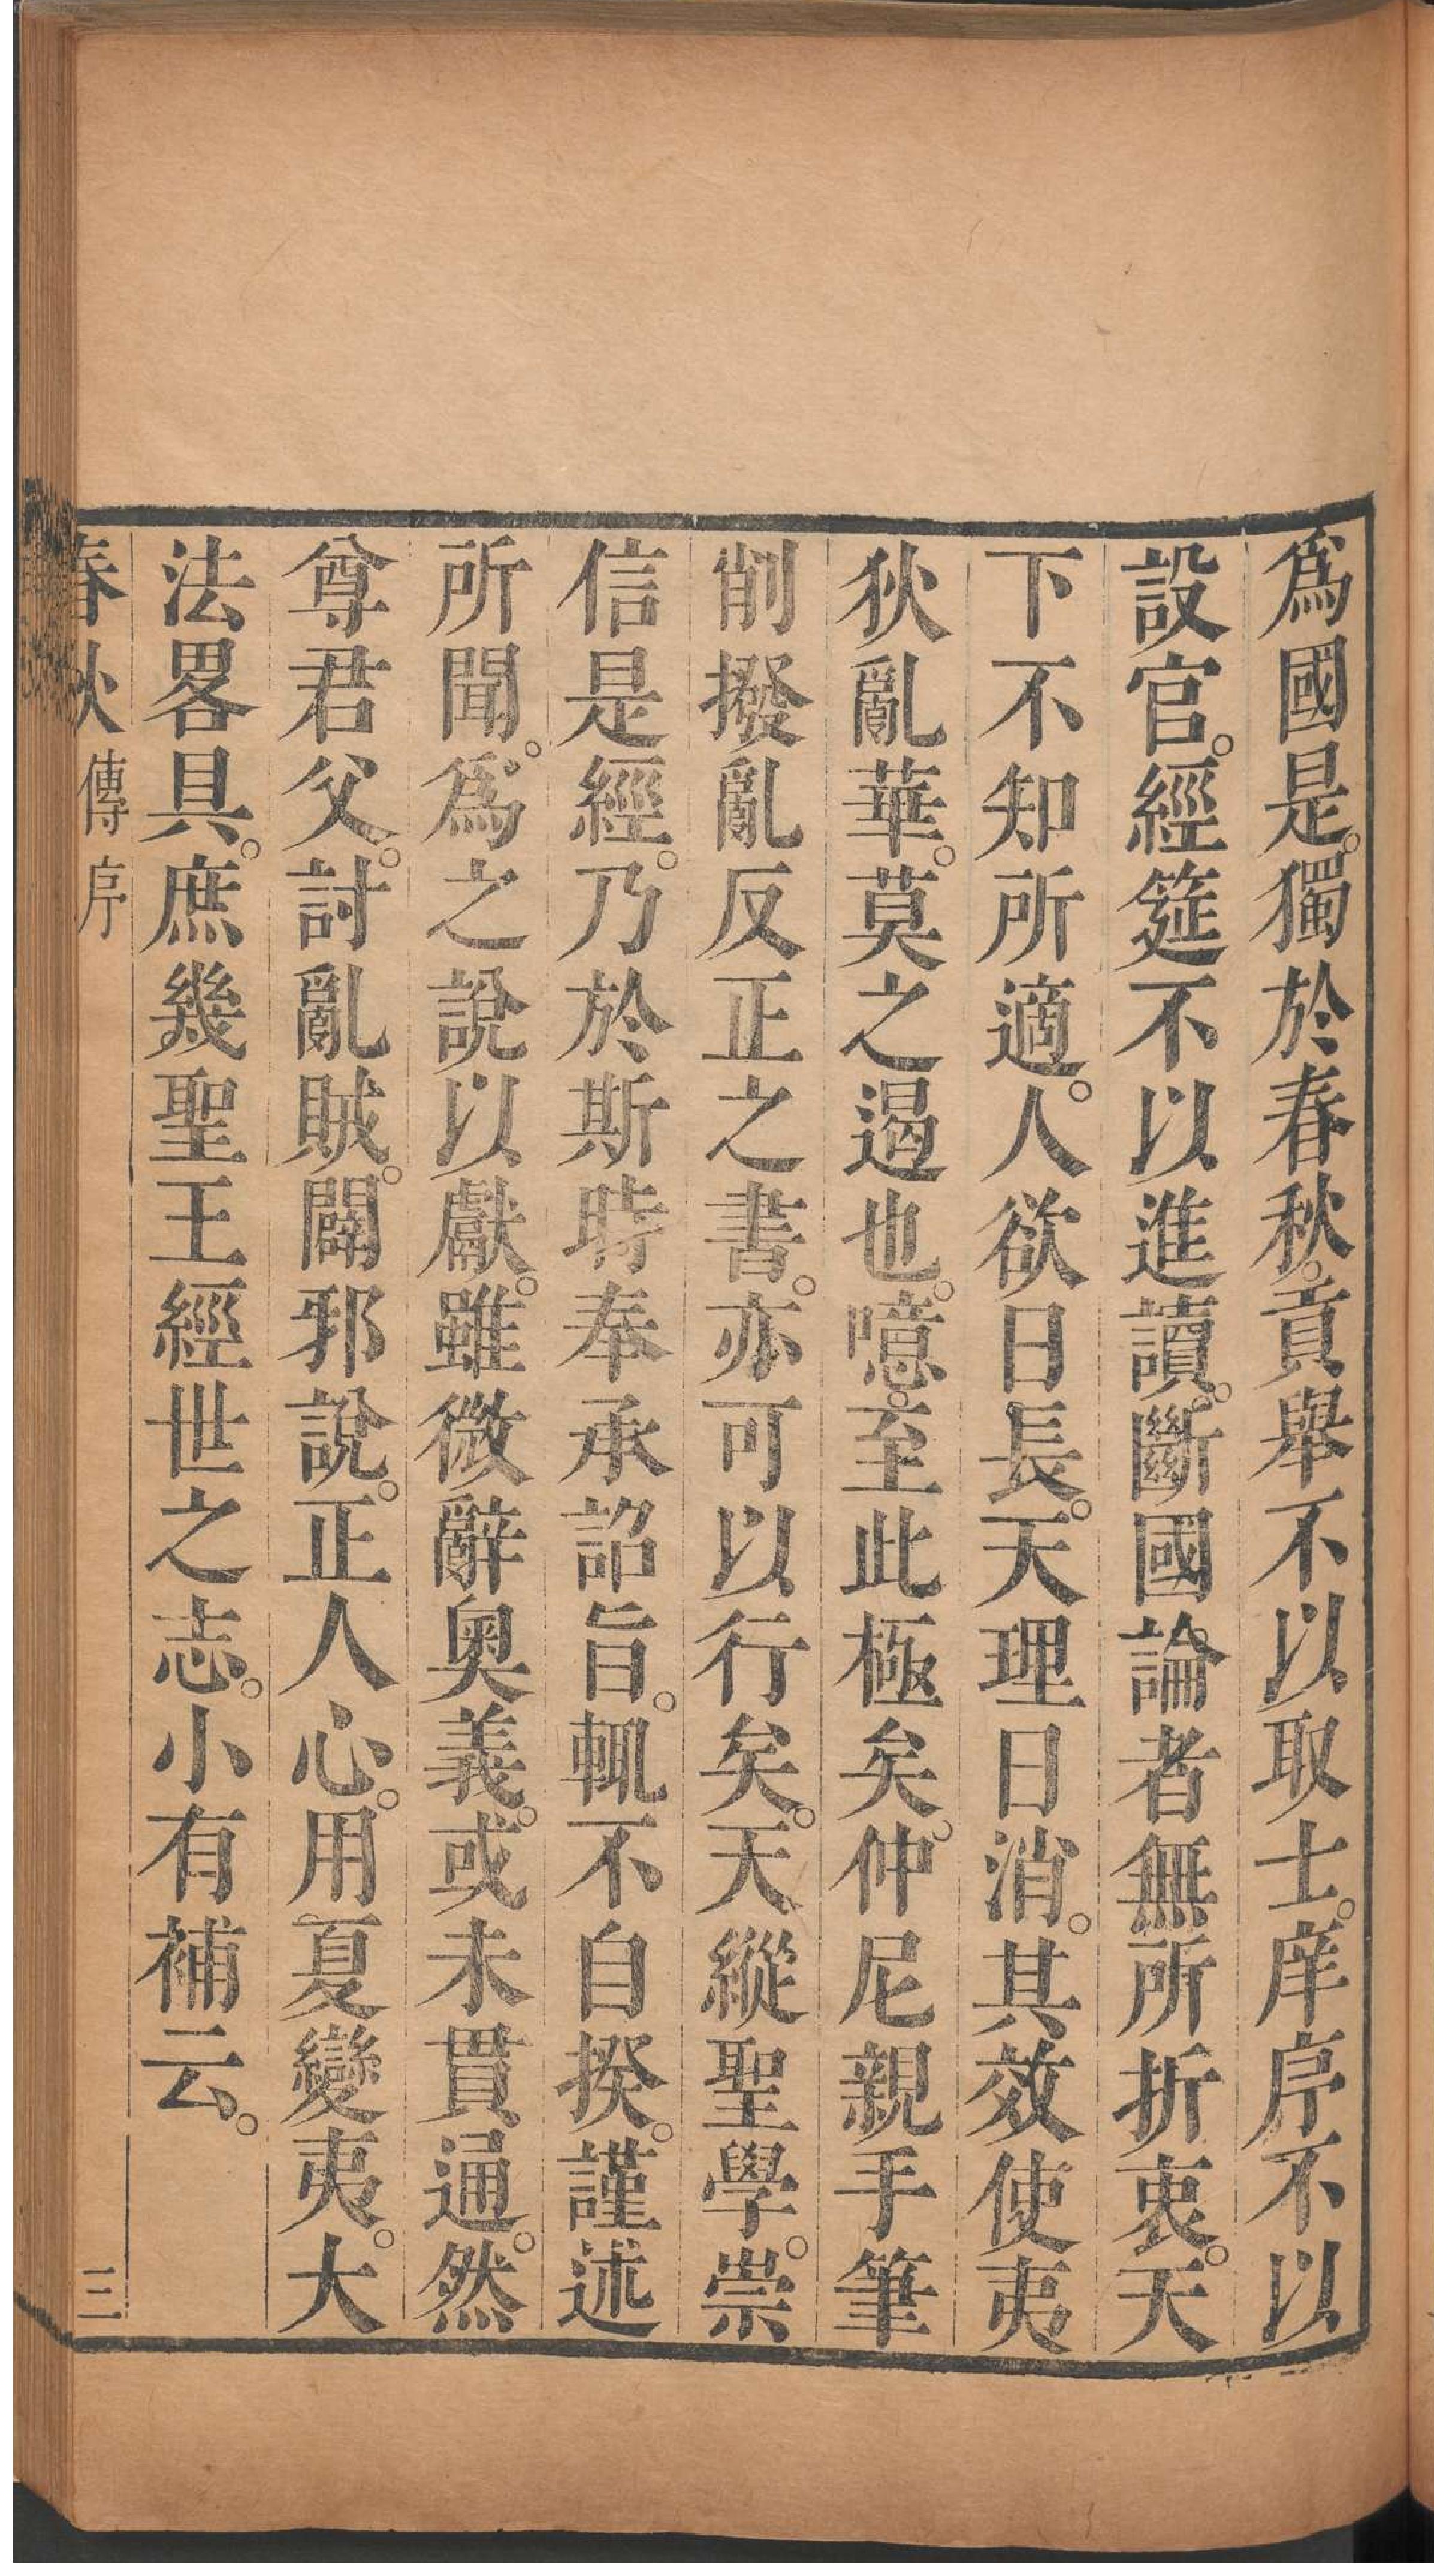 爲國是。獨於春秋。貢舉不以取士。庠序不以
設官。經筵不以進讀。斷國論者無所折衷。天
下不知所適。人欲日長。天理日消。其效使夷
狄亂華。莫之遏也。噫。至此極矣。仲尼親手筆
削撥亂反正之書。亦可以行矣。天縱聖學。崇
信是經。乃於斯時奉承詔旨。輒不自揆。謹述
所聞。爲之說以獻。雖微辭奧義。或未貫通。然
尊君父。討亂賊。闢邪說。正人心。用夏變夷。大
法畧具。庶幾聖王經世之志。小有補云。
春秋傳序 三